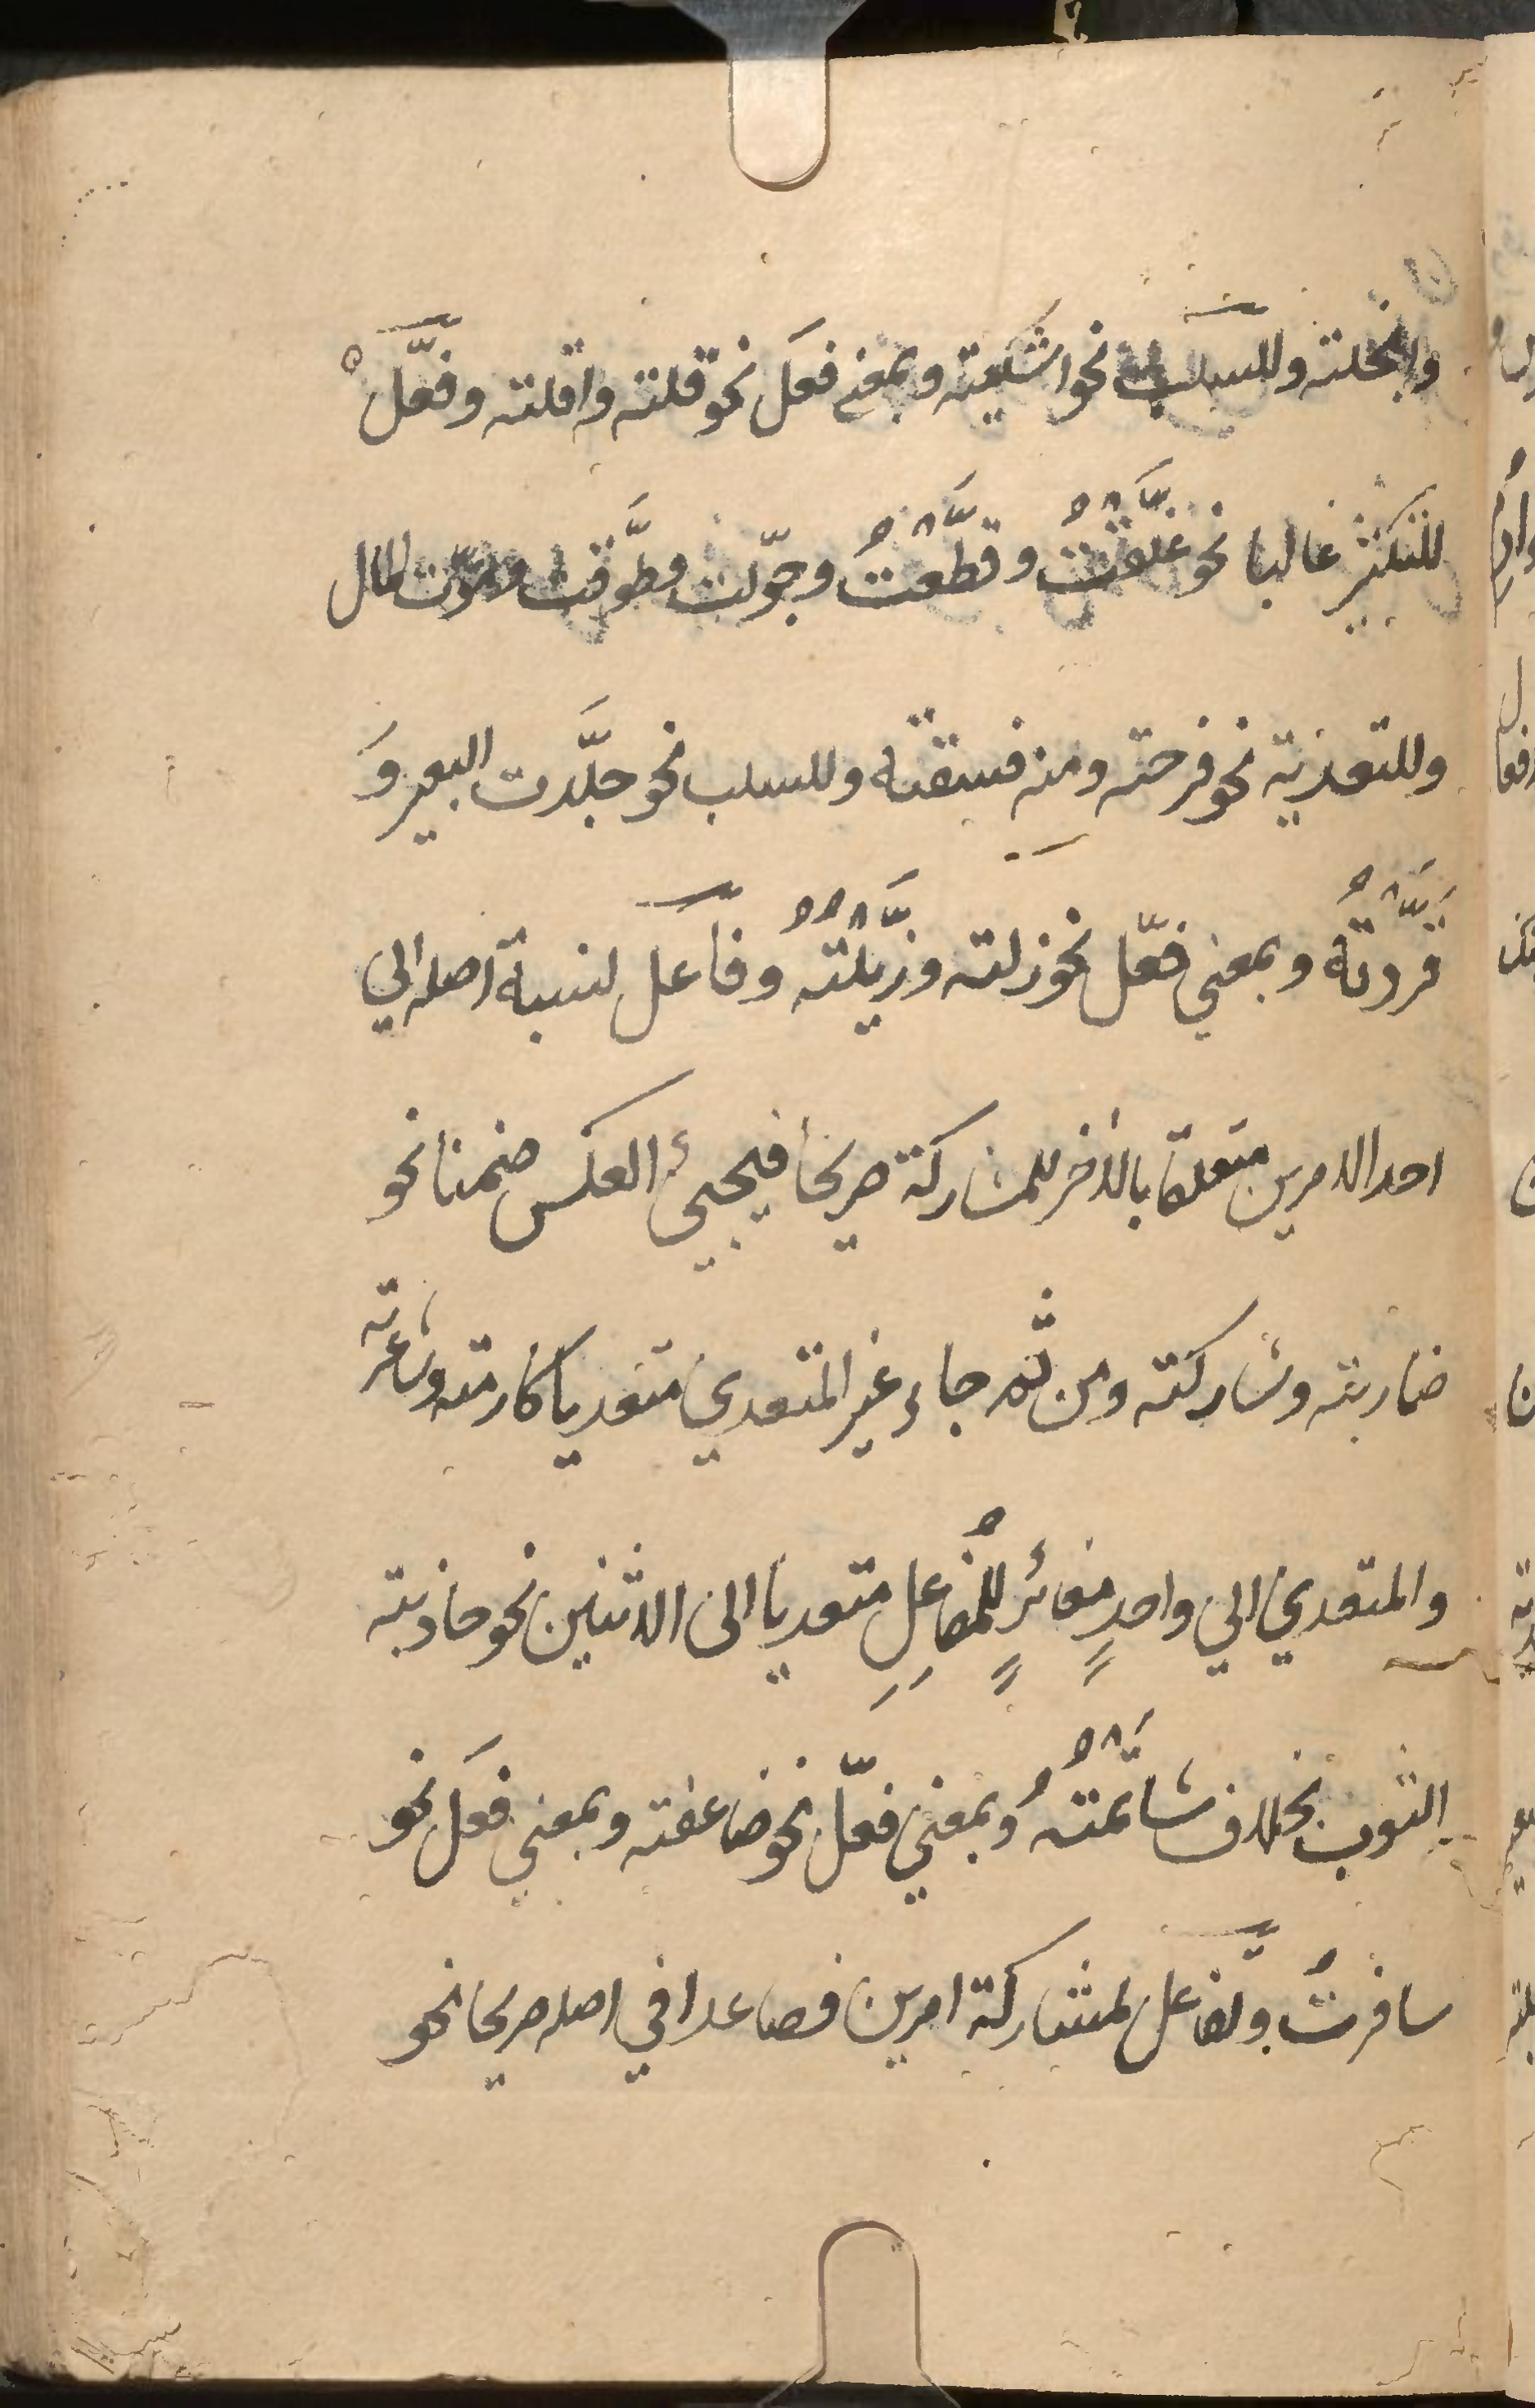 وابخلته وللسلب نحو اشكيته وبمعنى فعَل نحو قلته واقلته وفعَّل
للتكثير غالبا نحو غلَّقْتُ وقطَّعْتُ وجوّلت وطوَّفت وموّت المال
وللتعدية نحو فرحته ومنه فسقته وللسلب نحو جلَّدت البعير وَ
قَرَّدْتُهُ وبمعني فعّل نحو زلته وزَيَّلْتُهُ وفاعل لنسبة اصله الي
احد الامرين متعلقا بالأخر للمشاركة صريحا فيجيئ العكس ضمنا نحو
ضاربته وشاركته ومن ثم جاء غير المتعدي متعديا كارمته وشاعرته
والمتعدي الي واحدٍ مغائرٍ للمُفاعِلِ متعديا الى الاثنين نحو جاذبته
الثوب بخلاف شاتَمْتُهُ وبمعني فعّل نحو ضاعفته وبمعني فعَل نحو
سافرتُ وتَفاعل لمشاركة امرين فصاعدا في اصله صريحا نحو